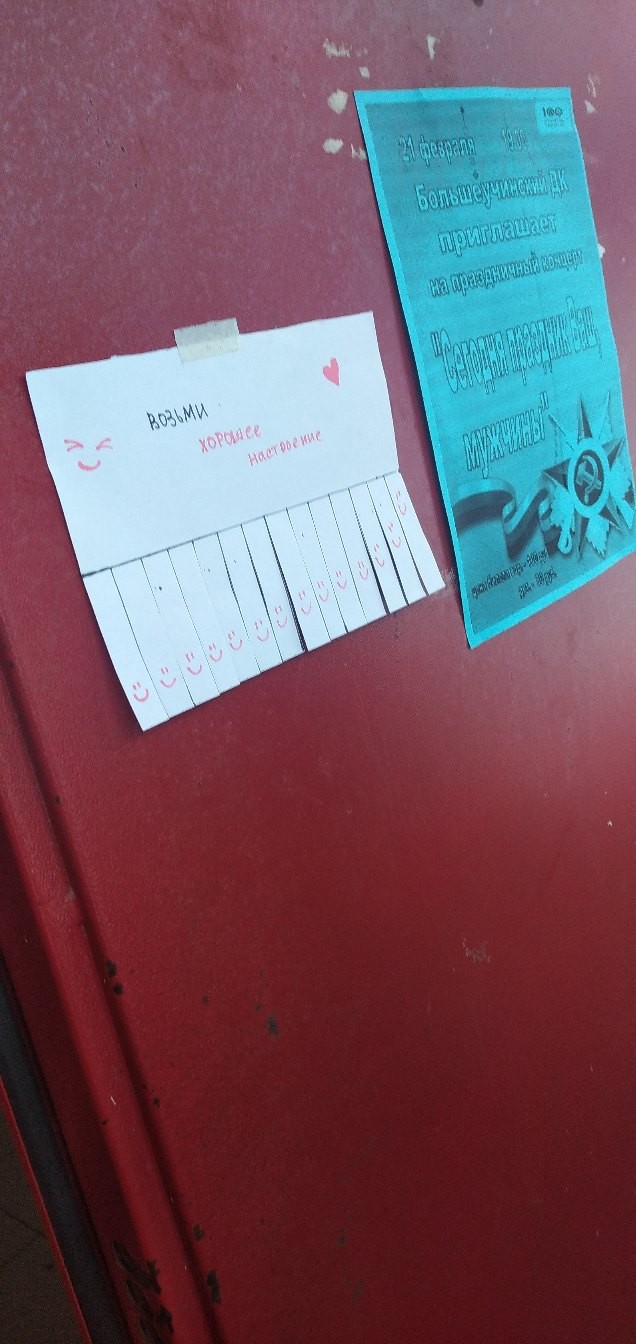 возьми
хорошее
настроение
21 февраля
Большеучинский ДК
приглашает
на праздничный концерт
"Сегодня праздник Ваш,
мужчины"